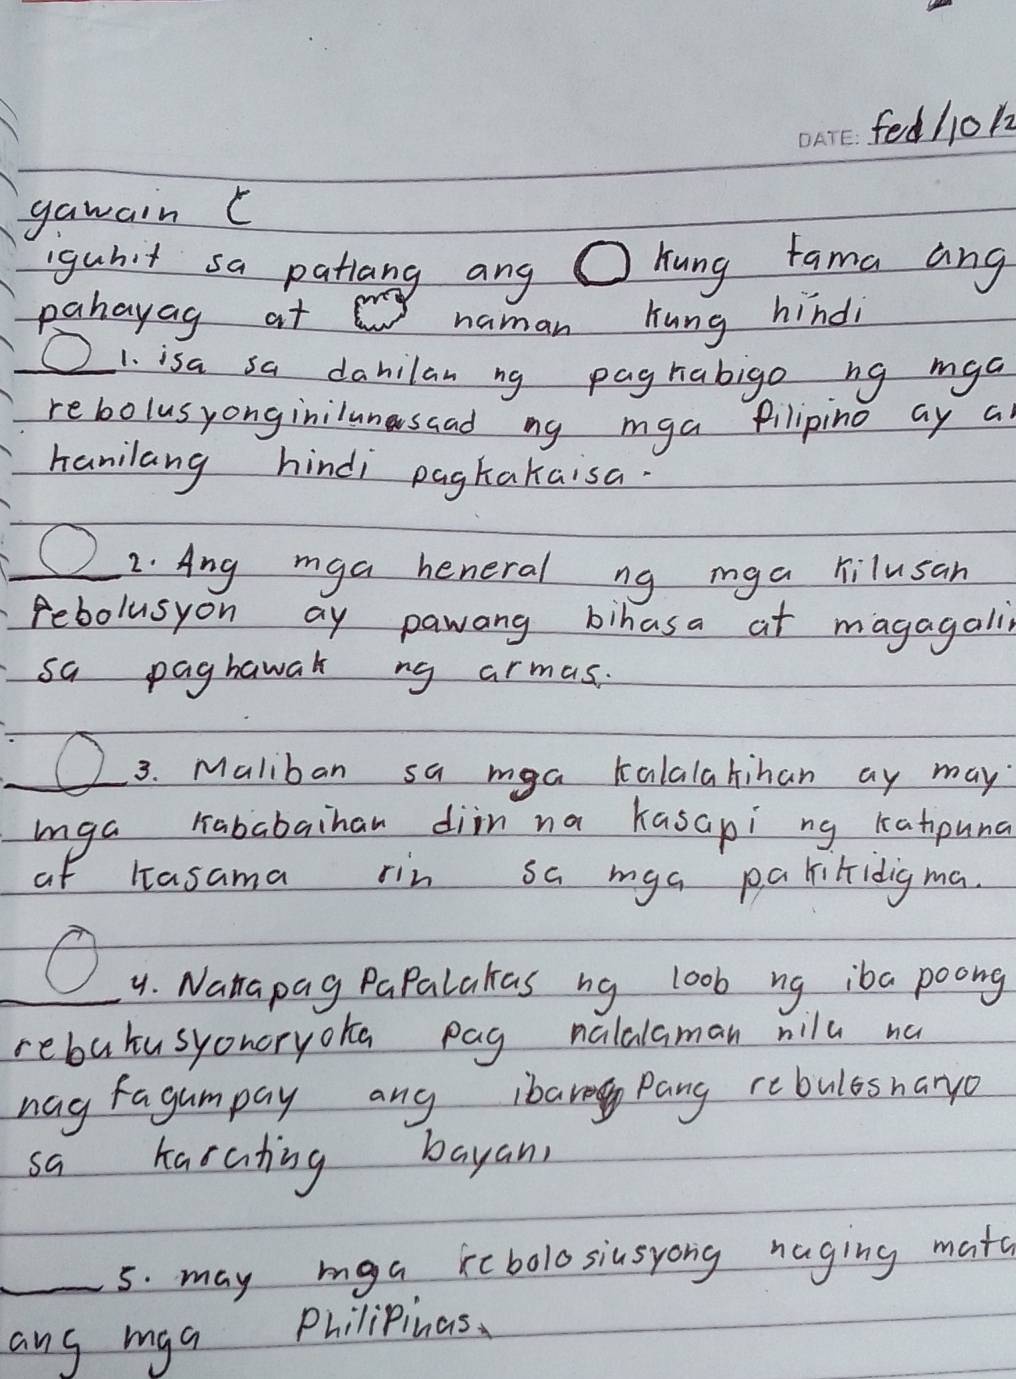 DATE: fed/10/2
gawain C
iguhit sa patlang ang O kung tama ang
pahayag at naman kung hindi
1. isa sa dahilan ng pagkabigo ng mga
rebolusyonginilunasaad ng mga Pilipino ay a
kanilang hindi pagkakaisa.
2. Ang mga heneral ng mga kilusan
Rebolusyon ay pawang bihasa at magagalin
sa paghawak ng armas.
3. Maliban sa mga kalalakihan ay may
mga kababaihan diin na kasapi ng katipuna
at kasama rin sa mga pakikidigma.
4. NakapagPaPalakas ng loob ng iba poong
rebukusyonoryoka pag nalalaman nila na
nag tagumpay ang Pang rebulosnaryo
sa karating bayan,
5. may mga rebolosiusyong naging mata
ang mga PhiliPinas.